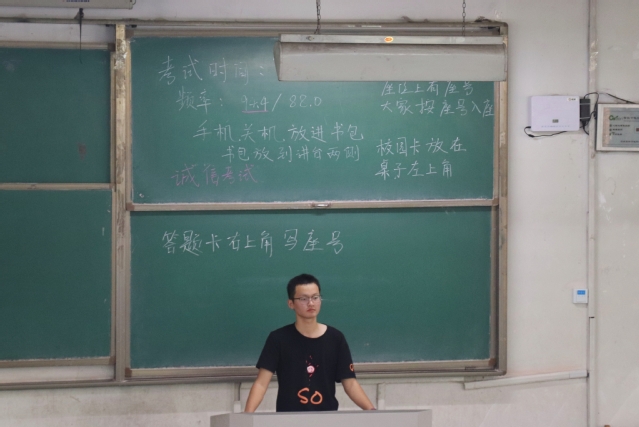 考试时间:
频率: 88.0
手机关机,放进书包
书包放到进行两侧
诚信考试
座位上有座号
大家按座号入座
校园卡放在
桌子左上角
答题卡右上角写座号
SO